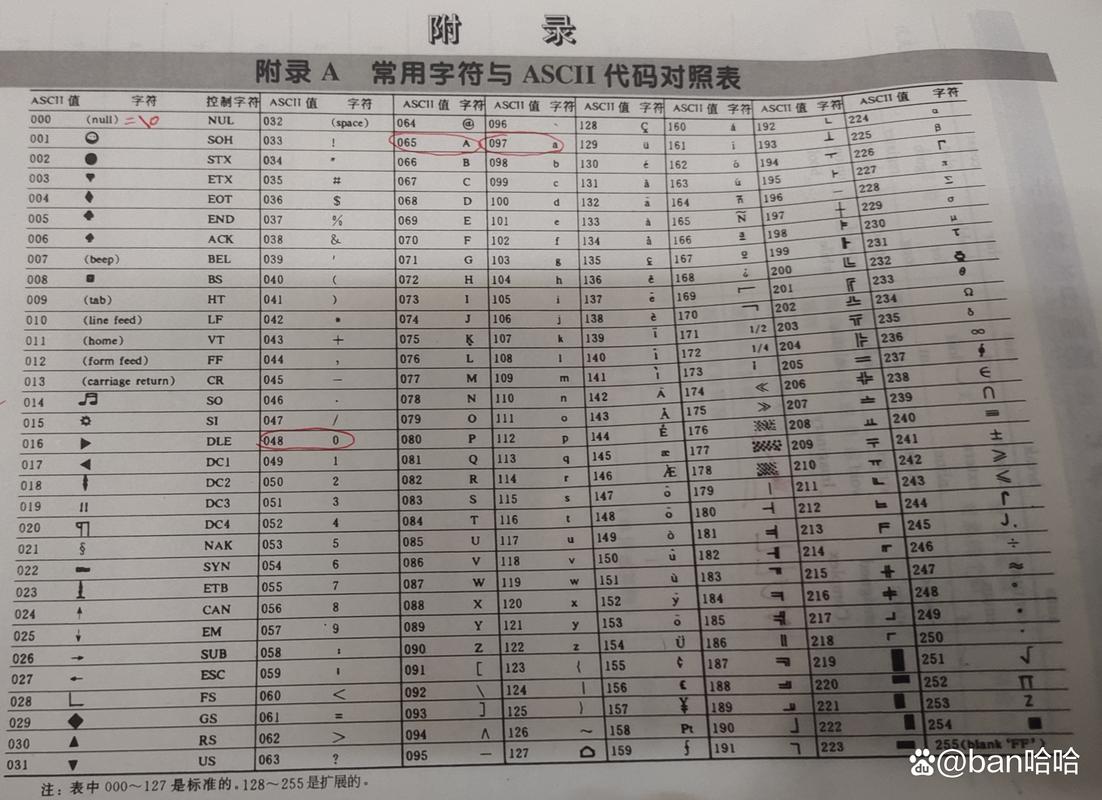 附 录
附录 A 常用字符与 ASCII 代码对照表
ASCII 值 字符 控制字符 ASCII 值 字符 ASCII 值 字符 ASCII 值 字符 ASCII 值 字符 ASCII 值 字符 ASCII 值 字符 ASCII 值 字符
000 (null) =\0 NUL 032 (space) 064 @ 096 ` 128 Ç 160 á 192 └ 224 α
001 ☺ SOH 033 ! 065 A 097 a 129 ü 161 í 193 ┴ 225 β
002 ● STX 034 " 066 B 098 b 130 é 162 ó 194 ┬ 226 Γ
003 ♥ ETX 035 # 067 C 099 c 131 â 163 ú 195 ├ 227 π
004 ♦ EOT 036 $ 068 D 100 d 132 ā 164 ñ 196 ─ 228 Σ
005 ♣ END 037 % 069 E 101 e 133 à 165 Ñ 197 ┼ 229 σ
006 ♠ ACK 038 & 070 F 102 f 134 å 166 ª 198 ╞ 230 μ
007 (beep) BEL 039 ' 071 G 103 g 135 ç 167 º 199 ╟ 231 τ
008 ◘ BS 040 ( 072 H 104 h 136 ê 168 ¿ 200 ╚ 232
009 (tab) HT 041 ) 073 I 105 i 137 ë 169 ⌐ 201 ╔ 233 θ
010 (line feed) LF 042 * 074 J 106 j 138 è 170 ¬ 202 ╩ 234 Ω
011 (home) VT 043 + 075 K 107 k 139 ï 171 1/2 203 ╦ 235 δ
012 (form feed) FF 044 , 076 L 108 l 140 î 172 1/4 204 ╠ 236 ∞
013 (carriage return) CR 045 — 077 M 109 m 141 ì 173 ¡ 205 ═ 237 ∮
014 ♫ SO 046 . 078 N 110 n 142 Ä 174 ≪ 206 ╬ 238 ∈
015 ☼ SI 047 / 079 O 111 o 143 Å 175 ≫ 207 ╧ 239 ∩
016 ▶ DLE 048 0 080 P 112 p 144 É 176 ░ 208 ╨ 240 ≡
017 ◀ DC1 049 1 081 Q 113 q 145 æ 177 ▒ 209 ╤ 241 ±
018 ↕ DC2 050 2 082 R 114 r 146 Æ 178 ▓ 210 ╥ 242 ≥
019 !! DC3 051 3 083 S 115 s 147 ô 179 │ 211 ╙ 243 ≤
020 ¶ DC4 052 4 084 T 116 t 148 ö 180 ┤ 212 ╘ 244 ⌠
021 § NAK 053 5 085 U 117 u 149 ò 181 ╡ 213 ╒ 245 ⌡
022 ▬ SYN 054 6 086 V 118 v 150 û 182 ╢ 214 ╓ 246 ÷
023 ↨ ETB 055 7 087 W 119 w 151 ù 183 ╖ 215 ╫ 247 ≈
024 ↑ CAN 056 8 088 X 120 x 152 ÿ 184 ╕ 216 ╪ 248 °
025 ↓ EM 057 9 089 Y 121 y 153 ö 185 ╣ 217 ┘ 249 •
026 → SUB 058 : 090 Z 122 z 154 Ü 186 ║ 218 ┌ 250 ·
027 ← ESC 059 ; 091 [ 123 { 155 ¢ 187 ╗ 219 █ 251 √
028 ∟ FS 060 < 092 \ 124 | 156 £ 188 ╝ 220 ▄ 252 Π
029 ◆ GS 061 = 093 ] 125 } 157 ¥ 189 ╜ 221 ▌ 253 Z
030 ▲ RS 062 > 094 ∧ 126 ~ 158 Pt 190 ╛ 222 ▐ 254 ■
031 ▼ US 063 ? 095 — 127 ⌂ 159 ƒ 191 ┐ 223 ▀ 255(blank 'FF')
注：表中 000～127 是标准的。128～255 是扩展的。
Bai du @ban哈哈